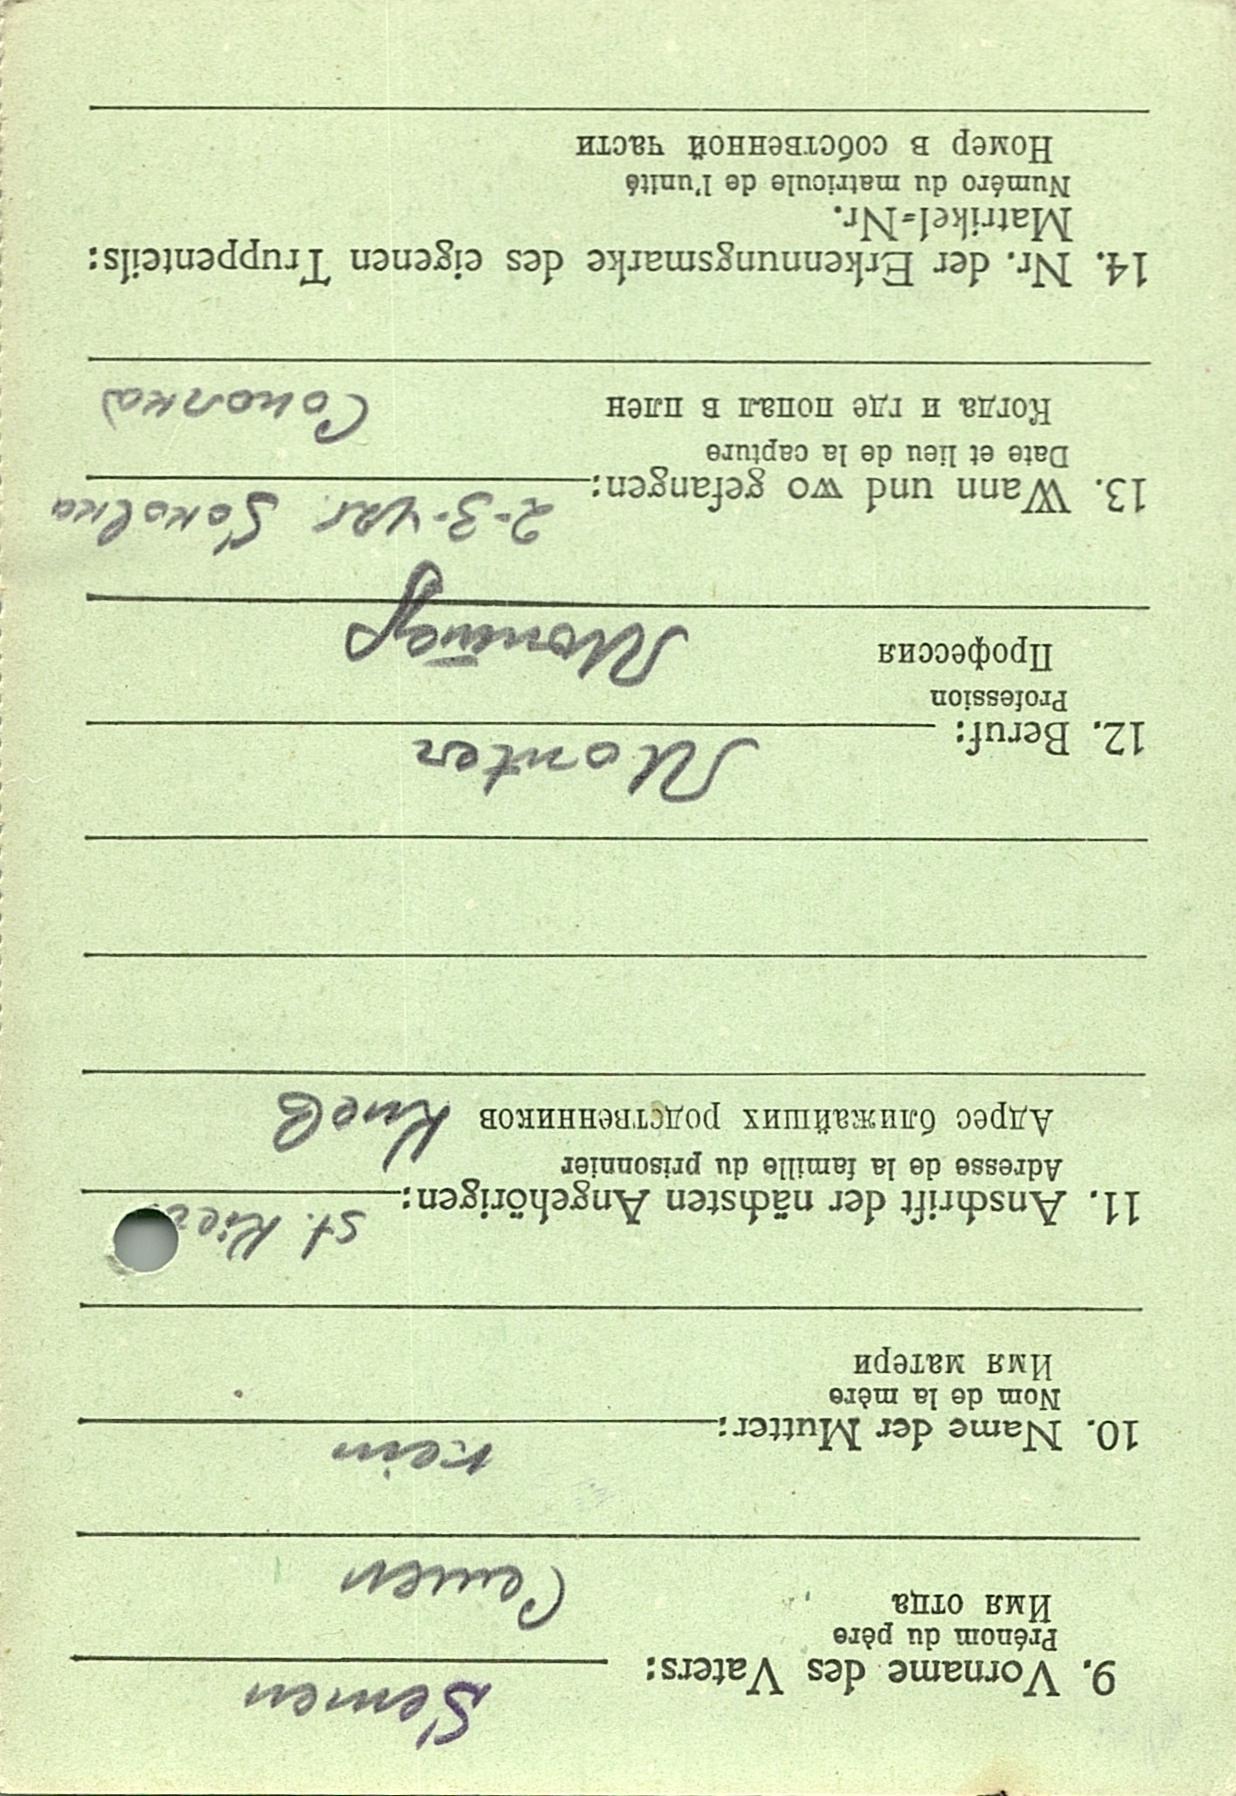 9. Vorname des Vaters: Semen
Prénom du père
Имя отца Семен
10. Name der Mutter: kein
Nom de la mère
Имя матери
11. Anschrift der nächsten Angehörigen: St. Kiew
Adresse de la famille du prisonnier
Адрес ближайших родственников Киев
12. Beruf: Monter
Profession
Профессия Монтёр
13. Wann und wo gefangen: Sokolka
Date et lieu de la capture
Когда и где попал в плен Соколка
14. Nr. der Erkennungsmarke des eigenen Truppenteils:
Matrikel-Nr.
Numéro du matricule de l'unité
Номер в собственной части